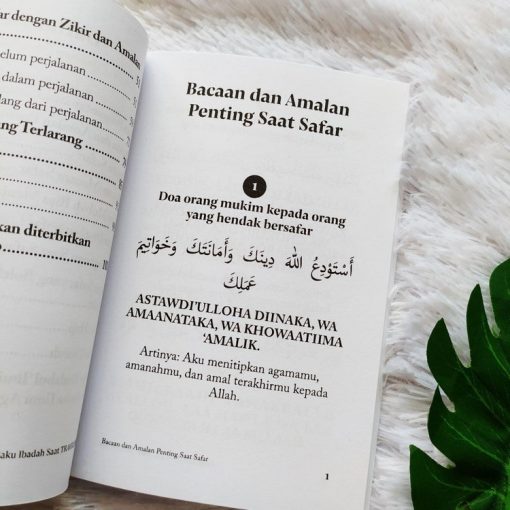 ar dengan Zikir dan Amalan
elum perjalanan
dalam perjalanan
lang dari perjalanan
ng Terlarang
kan diterbitkan
aku Ibadah Saat
Bacaan dan Amalan
Penting Saat Safar
1
Doa orang mukim kepada orang
yang hendak bersafar
أَسْتَوْدِعُ اللَّهَ دِينَكَ وَأَمَانَتَكَ وَخَوَاتِيمَ
عَمَلِكَ
ASTAWDI'ULLOHA DIINAKA, WA
AMAANATAKA, WA KHOWAATIIMA
'AMALIK.
Artinya: Aku menitipkan agamamu,
amanahmu, dan amal terakhirmu kepada
Allah.
Bacaan dan Amalan Penting Saat Safar
1